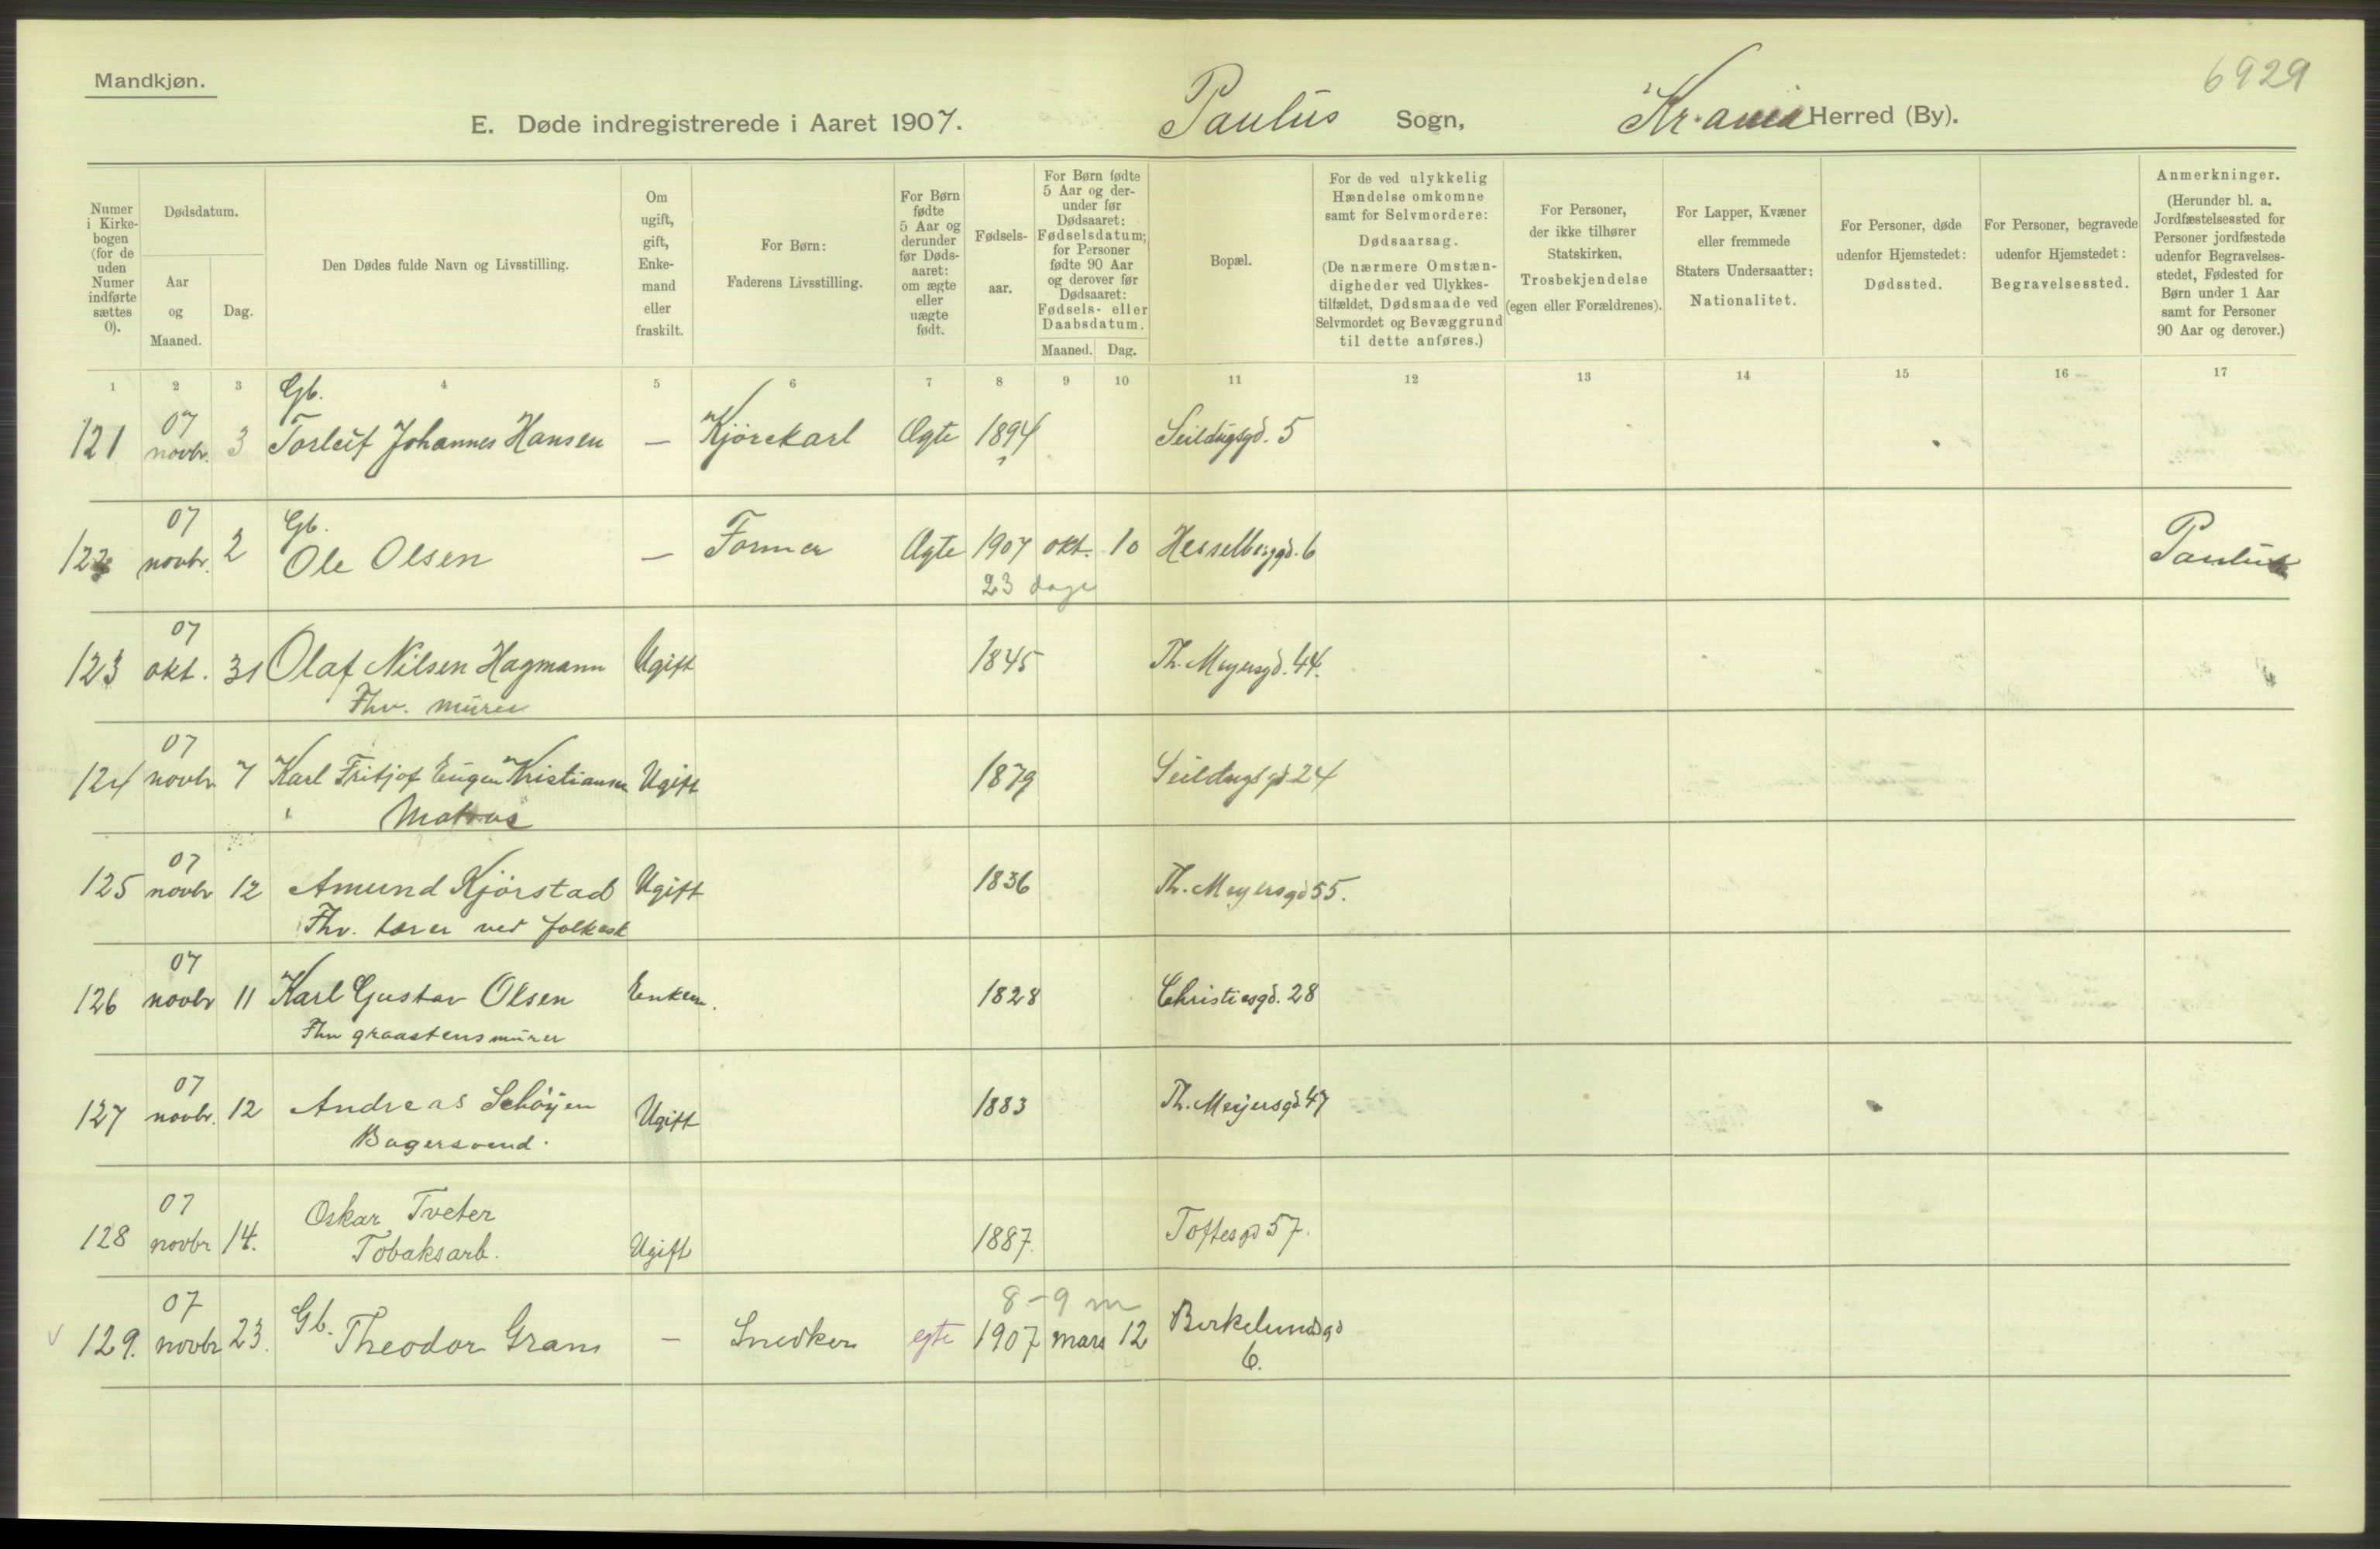 Mandkjøn.
6929
E. Døde indregistrerede i Aaret 1907. Paulus Sogn, Kr.ania Herred (By).
Numer i Kirkebogen (for de uden Numer indførte sættes 0).
Dødsdatum.
Aar og Maaned.
Dag.
Den Dødes fulde Navn og Livsstilling.
Om ugift, gift, Enkemand eller fraskilt.
For Børn: Faderens Livsstilling.
For Børn fødte 5 Aar og derunder før Dødsaaret: om ægte eller uægte født.
Fødselsaar.
For Børn fødte 5 Aar og derunder før Dødsaaret: Fødselsdatum; for Personer fødte 90 Aar og derover før Dødsaaret: Fødsels- eller Daabsdatum.
Maaned. Dag.
Bopæl.
For de ved ulykkelig Hændelse omkomne samt for Selvmordere: Dødsaarsag. (De nærmere Omstændigheder ved Ulykkestilfældet, Dødsmaade ved Selvmordet og Bevæggrund til dette anføres.)
For Personer, der ikke tilhører Statskirken, Trosbekjendelse (egen eller Forældrenes).
For Lapper, Kvæner eller fremmede Staters Undersaatter: Nationalitet.
For Personer, døde udenfor Hjemstedet: Dødssted.
For Personer, begravede udenfor Hjemstedet: Begravelsessted.
Anmerkninger. (Herunder bl. a. Jordfæstelsessted for Personer jordfæstede udenfor Begravelsesstedet, Fødested for Børn under 1 Aar samt for Personer 90 Aar og derover.)
1 2 3 4 5 6 7 8 9 10 11 12 13 14 15 16 17
07 Gb.
121 novbr. 3 Torleif Johannes Hansen — Kjørekarl Ægte 1894 Seildugsgd. 5
07 Gb.
122 novbr. 2 Ole Olsen — Former Ægte 1907 okt. 10 Hesselberggd. 6 Paulus
23 dage
07
123 okt. 31 Olaf Nilsen Hagmann Ugift 1845 Th. Meyersgd. 44.
Fhv. murer
07
124 novbr 7 Karl Fritjof Eugen Kristiansen Ugift 1879 Seildugsgd 24
Matros
07
125 novbr 12 Amund Kjørstad Ugift 1836 Th. Meyersgd 55.
Fhv. lærer ved folkesk
07
126 novbr 11 Karl Gustav Olsen Enkem. 1828 Christiesgd. 28
Fhv graastensmurer
07
127 novbr. 12 Andreas Schøyen Ugift 1883 Th. Meyersgd 47
Bagersvend.
07
128 novbr 14. Oskar Tveter Ugift 1887. Toftesgd 57.
Tobaksarb.
07 8-9 m
129. novbr 23. Gb. Theodor Gram — Snedker egte 1907 mars 12 Birkelundsgd
6.